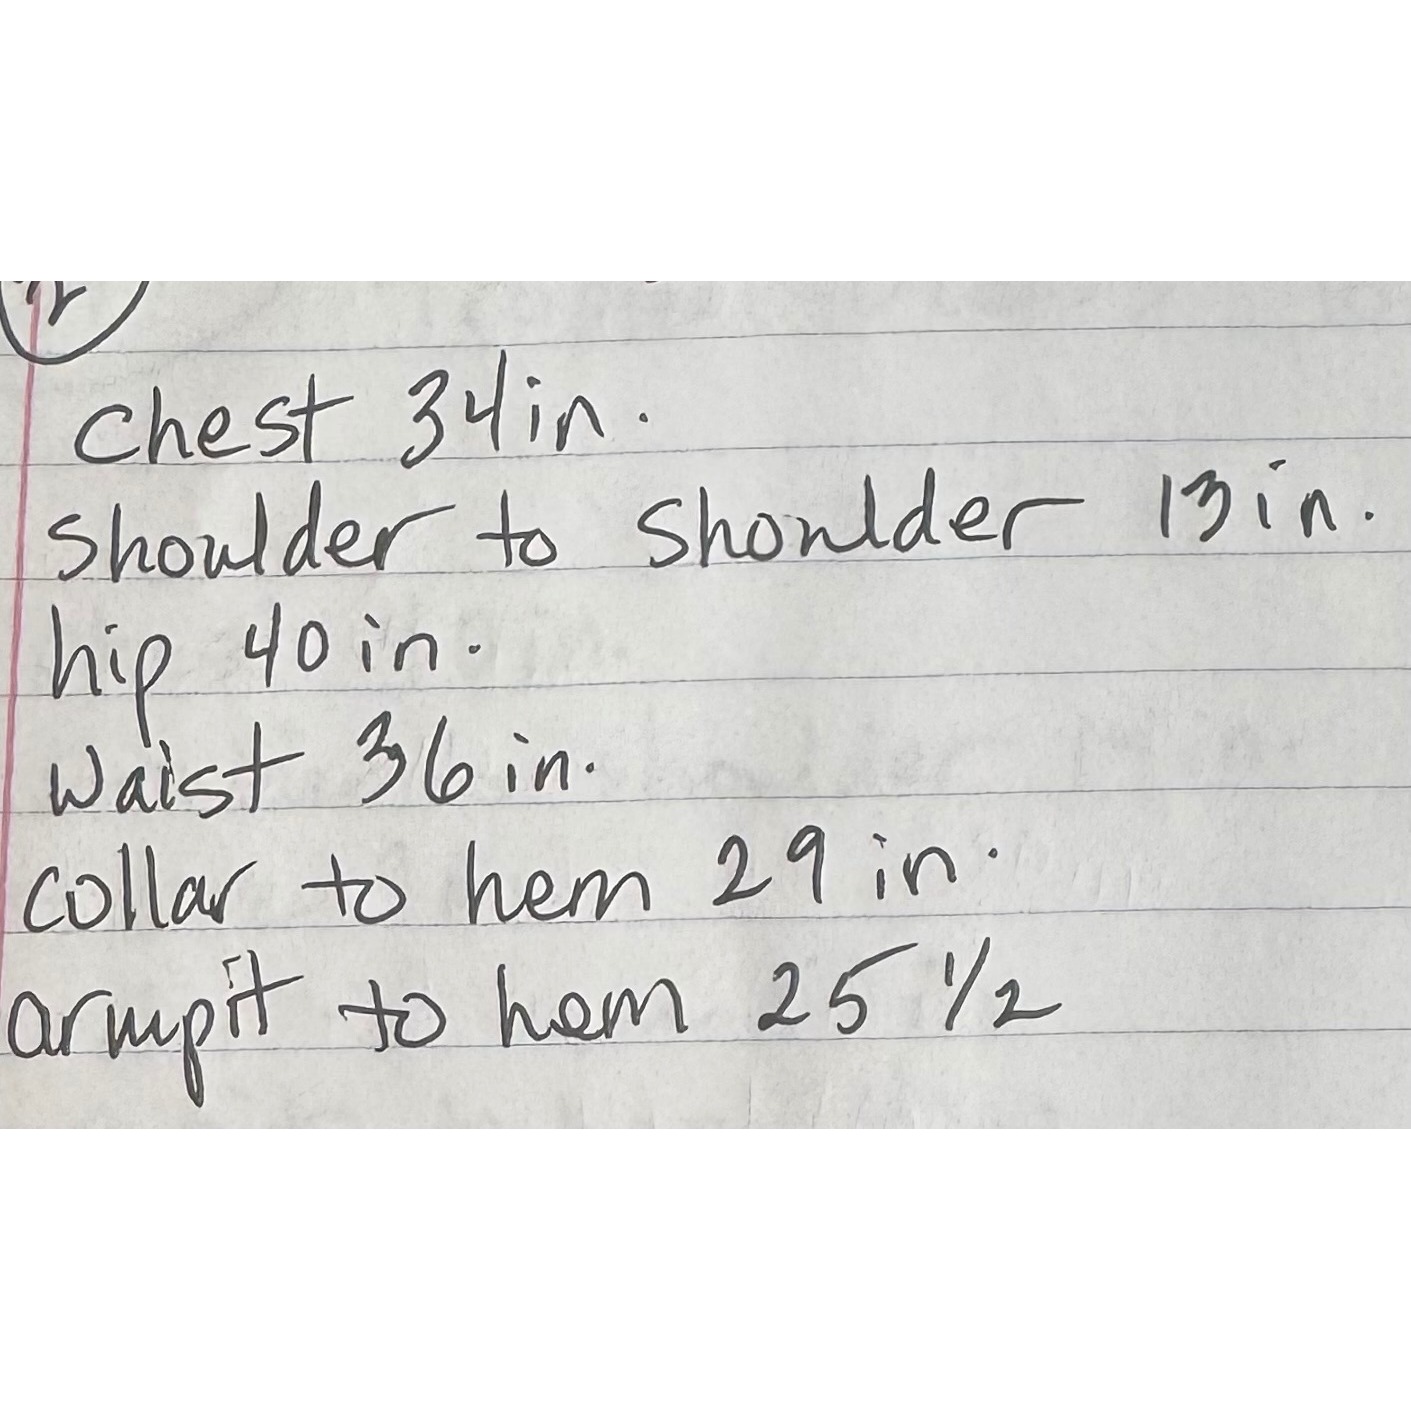 chest 34in.
shoulder to shoulder 13in.
hip 40in.
waist 36in.
collar to hem 29in.
armpit to hem 25 1/2